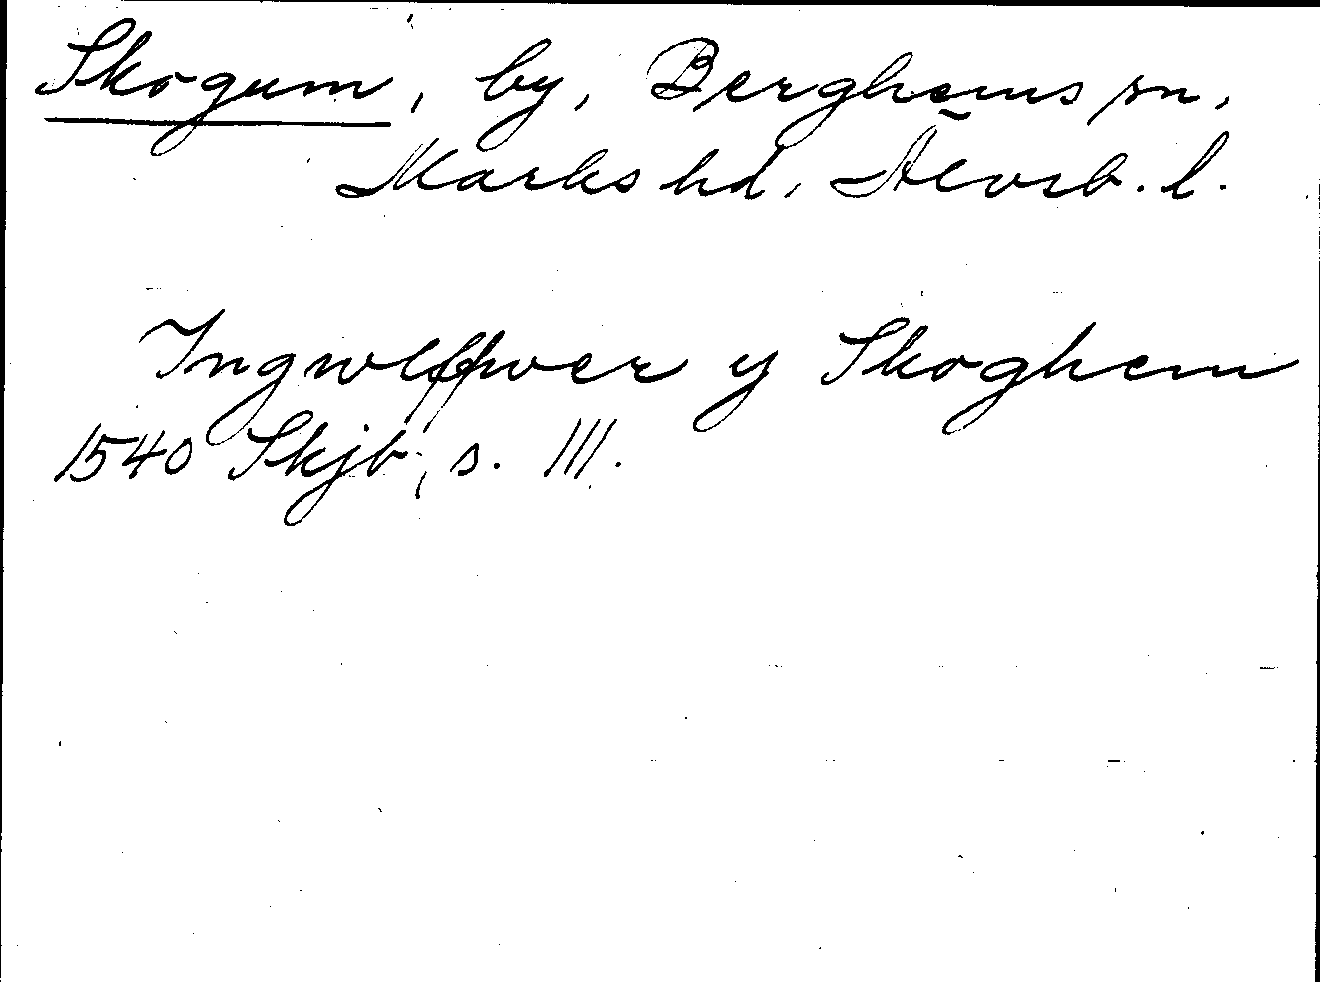 Skogum, by, Berghems sn,
Marks hd, Älvsb. l.
Ingwlffwer y Skoghem
1540 Skjb, s. 111.